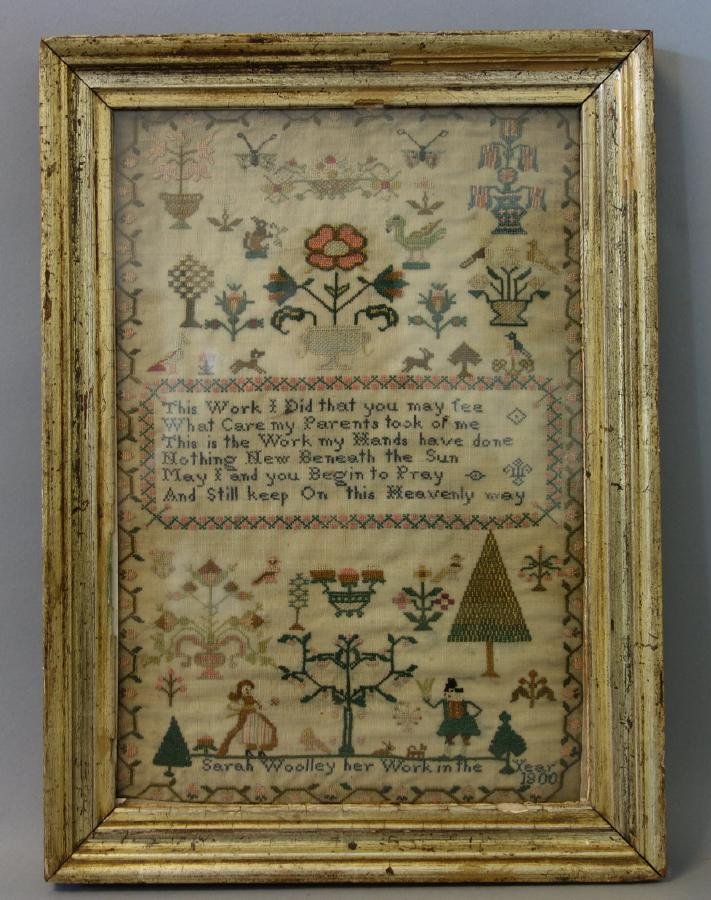 This Work I Did that you may fee
What Care my Parents took of me
This is the Work my Hands have done
Nothing New Beneath the Sun
May I and you Begin to Pray
And Still keep On this Heavenly way
Sarah Woolley her Work in the Year
1800